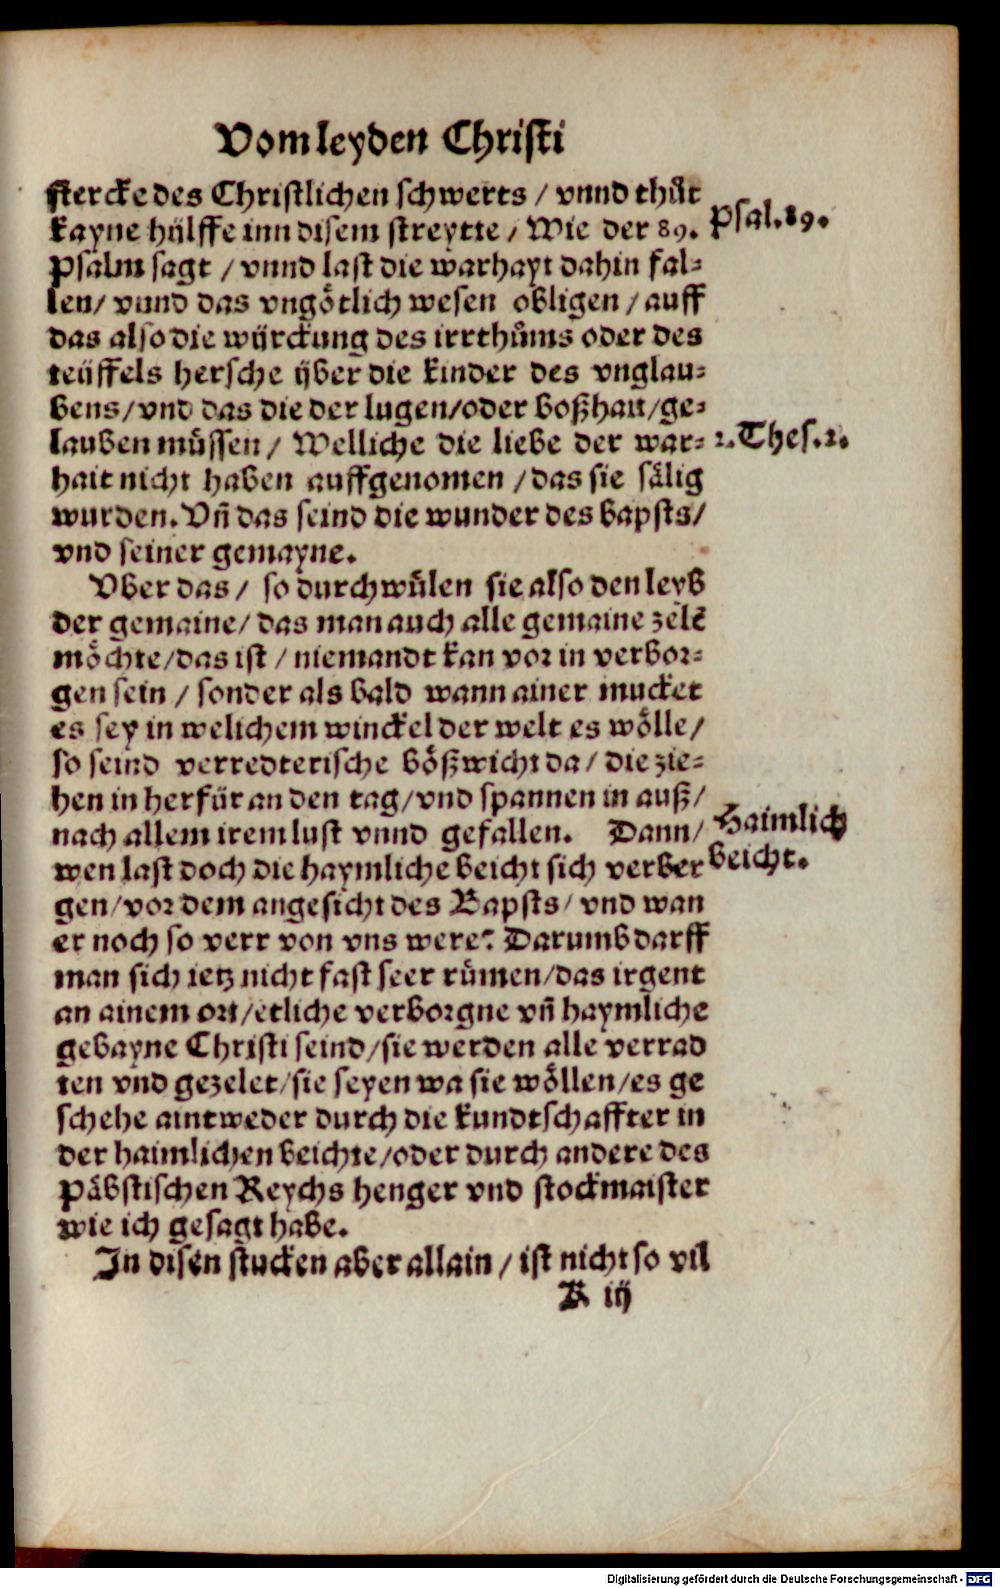 Vom leyden Christi
stercke des Christlichen schwerts / vnnd thůt
kayne hülffe inn disem streytte / Wie der 89.
Psal. 89.
Psalm sagt / vnnd last die warhayt dahin fal⸗
len / vnnd das vngötlich wesen obligen / auff
das also die würckung des irrthůms oder des
teüffels hersche über die kinder des vnglau⸗
bens / vnd das die der lugen / oder boßhait / ge⸗
lauben müssen / Welliche die liebe der war⸗
2. Thes. 2.
hait nicht haben auffgenomen / das sie sälig
wurden. Vñ das seind die wunder des bapsts /
vnd seiner gemayne.
Vber das / so durchwülen sie also den leyb
der gemaine / das man auch alle gemaine zelē
möchte / das ist / niemandt kan vor in verbor⸗
gen sein / sonder als bald wann ainer mucket
es sey in welichem winckel der welt es wölle /
so seind verredterische bößwicht da / die zie⸗
hen in herfür an den tag / vnd spannen in auß /
nach allem irem lust vnnd gefallen. Dann /
Haimlich
beicht.
wen last doch die haymliche beicht sich verber
gen / vor dem angesicht des Bapsts / vnd wan
er noch so verr von vns were? Darumb darff
man sich ietz nicht fast seer rümen / das irgent
an ainem ort / etliche verborgne vñ haymliche
gebayne Christi seind / sie werden alle verrad
ten vnd gezelet / sie seyen wa sie wöllen / es ge
schehe aintweder durch die kundtschaffter in
der haimlichen beichte / oder durch andere des
Päbstischen Reychs henger vnd stockmaister
wie ich gesagt habe.
In disen stucken aber allain / ist nicht so vil
K iij
Digitalisierung gefördert durch die Deutsche Forschungsgemeinschaft - DFG